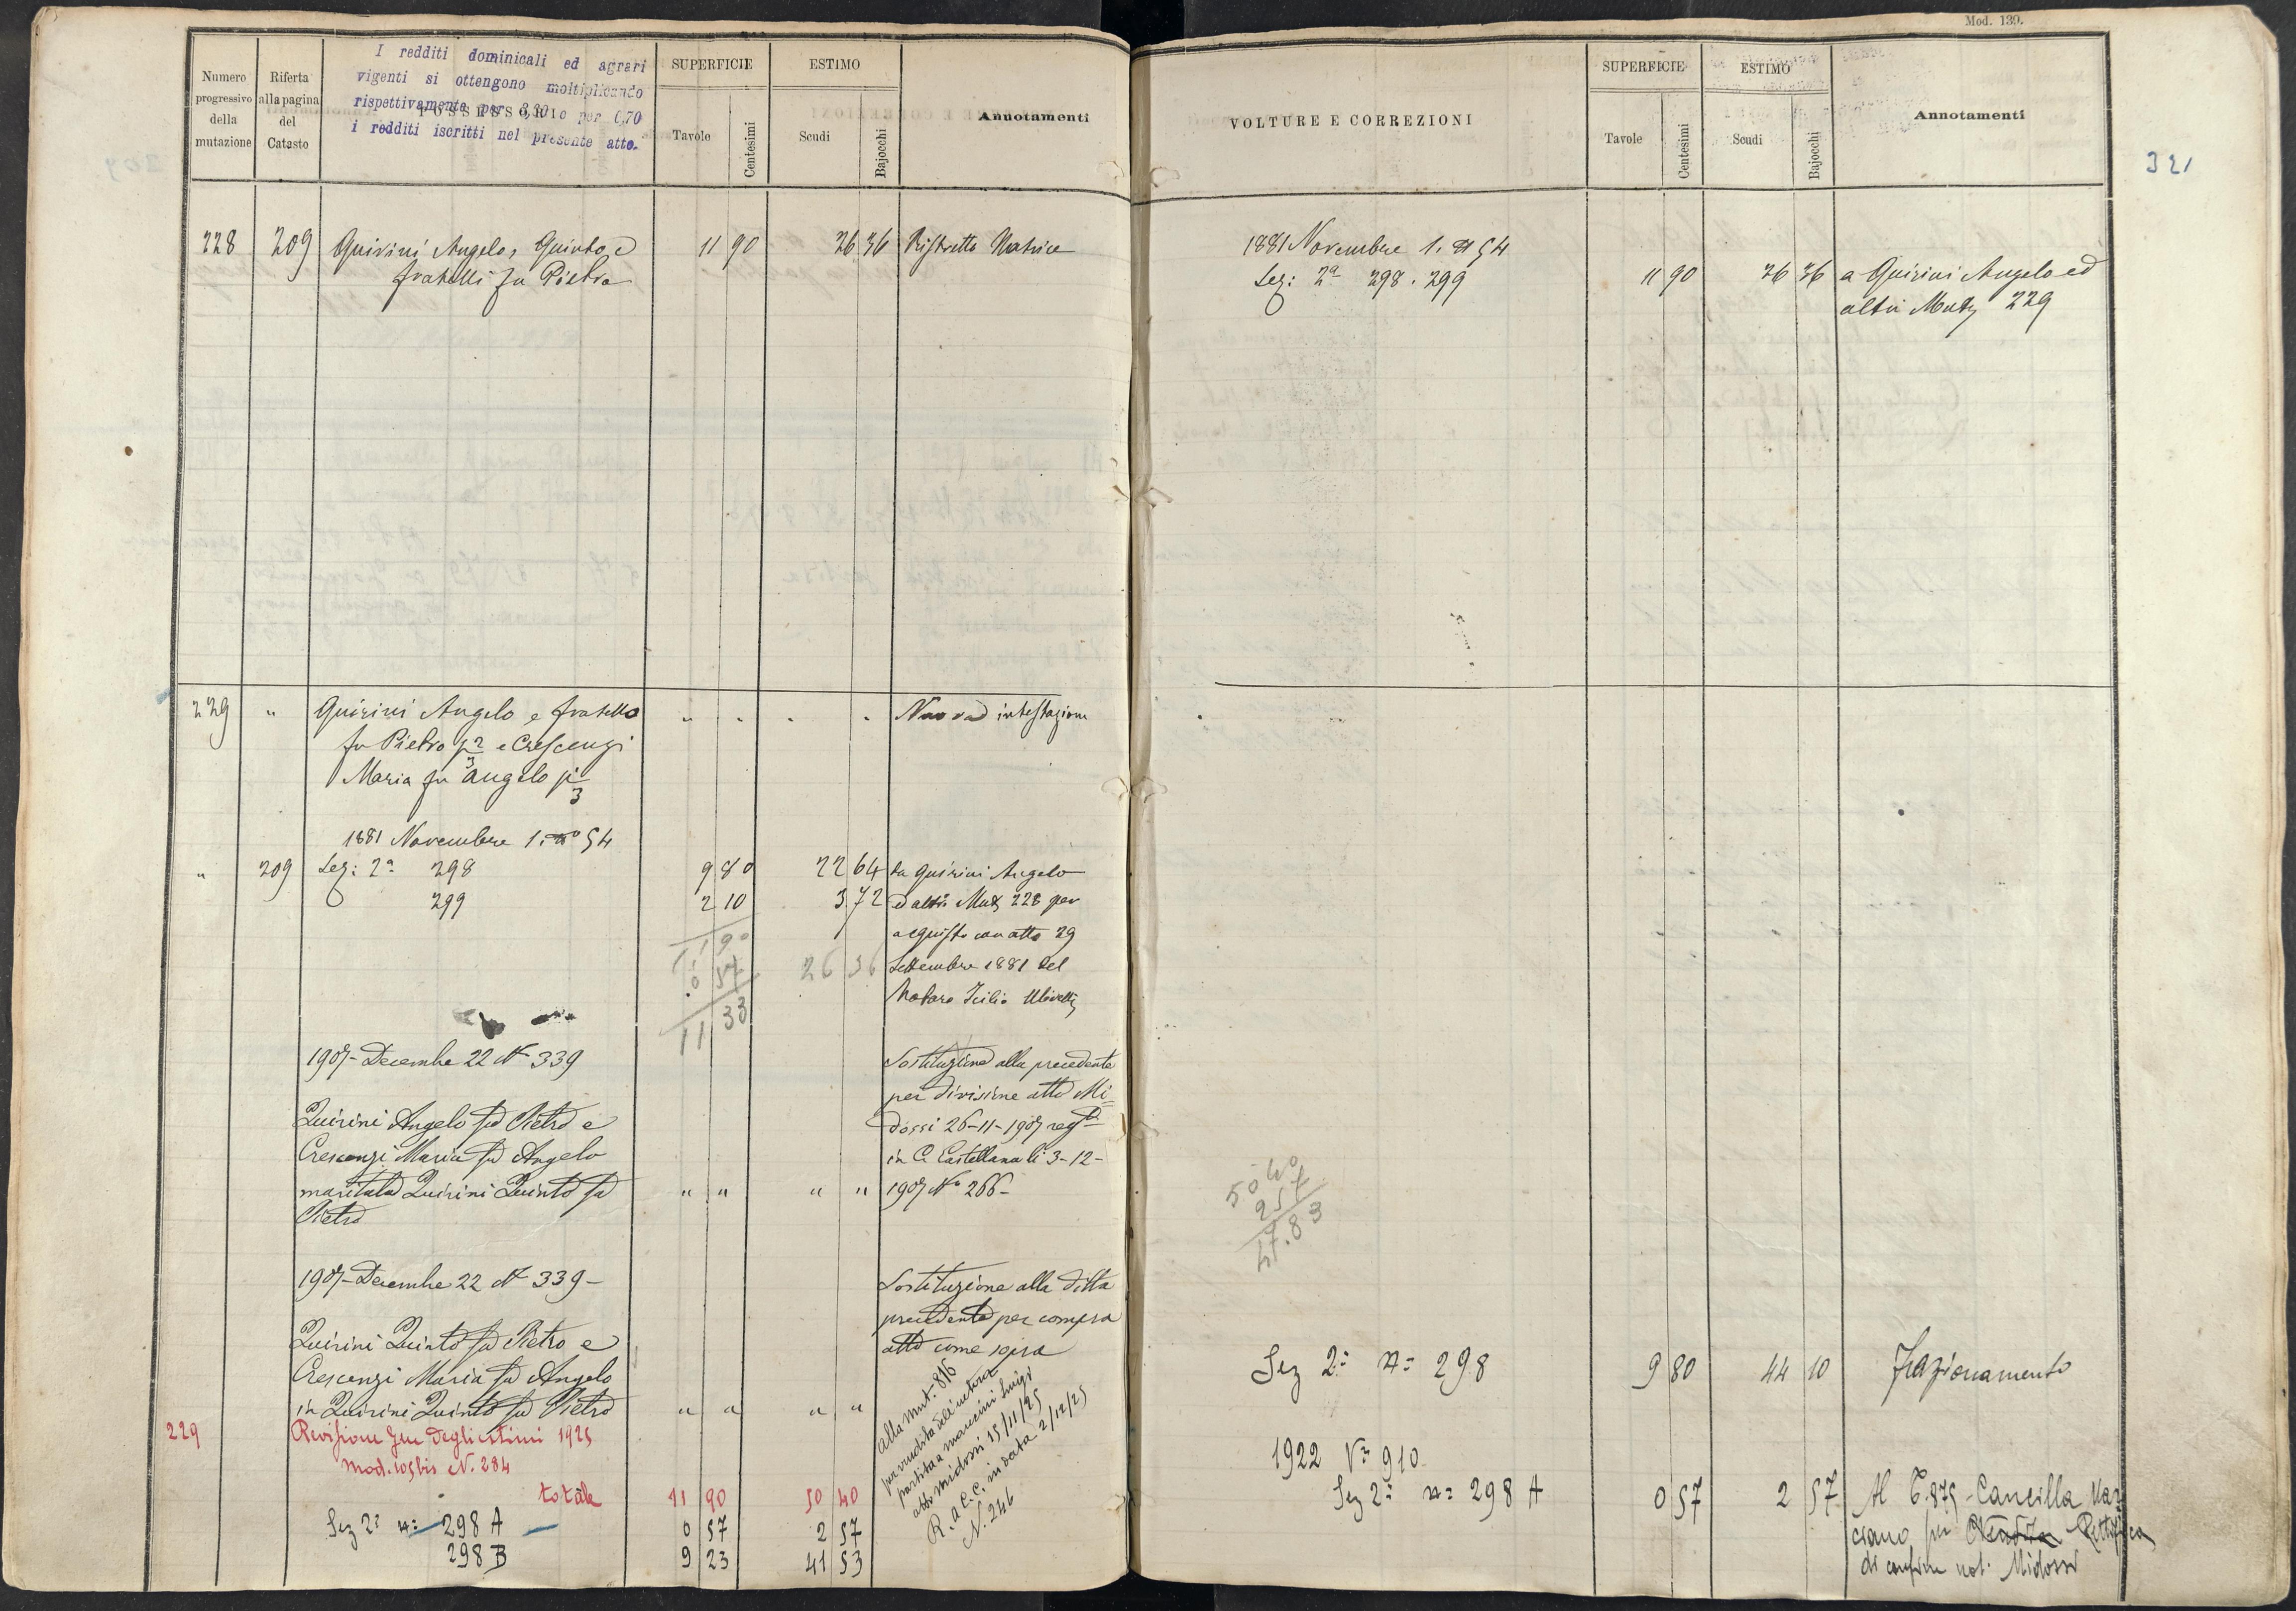 Numero progressivo della mutazione
Riferta alla pagina del Catasto
I redditi dominicali ed agrari
vigenti si ottengono moltiplicando
rispettivamente per 3,30 e per 0,70
i redditi iscritti nel presente atto.
POSSESSORI
SUPERFICIE
Tavole
Centesimi
ESTIMO
Scudi
Bajocchi
Annotamenti
228 209 Quirini Angelo, Quinto e 11 90 26 36 Ristretto Matrice
fratelli fu Pietro
229 " Quirini Angelo e fratello " " " " Nuova intestazione
fu Pietro p 2/3 e Crescenzi
Maria fu Angelo p 1/3
1881 Novembre 1. n° 54
" 209 Sez: 2ª 298 9 80 22 64 da Quirini Angelo
299 2 10 3 72 ed altri Mutz 228 per
11 90 acquisto con atto 29
0 57 26 36 Settembre 1881 del
11 33 Notaro Icilio
1907 - Decembre 22 N° 339 Sostituzione alla precedente
per divisione atto Mi=
Quirini Angelo fu Pietro e dossi 26-11-1907 regto
Crescenzi Maria fu Angelo in C. Castellana li 3-12-
maritata Quirini Quinto fu " " " " 1907 N° 266-
Pietro
1907 - Decembre 22 N° 339 - Sostituzione alla ditta
precedente per compra
Quirini Quinto fu Pietro e atto come sopra
Crescenzi Maria fu Angelo
in Quirini Quinto fu Pietro " " " "
229 Revisione gen degli estimi 1925
Mod. 105 bis N. 284
totale 11 90 50 40
Sez 2ª n= 298 A 0 57 2 57
298 B 9 23 41 53
alla mut. 816
per vendita dell'intera
partita a mancini Luigi
atto midossi 15/11/25
R. a C. C. in data 2/12/25
N. 246
Mod. 139.
VOLTURE E CORREZIONI
SUPERFICIE
Tavole
Centesimi
ESTIMO
Scudi
Bajocchi
Annotamenti
321
1881 Novembre 1. n° 54
Sez: 2ª 298 . 299 11 90 26 36 a Quirini Angelo ed
altri Mutz 229
50 40
2 57
47.83
Sez 2ª n= 298 9 80 44 10 Frazionamento
1922 N= 910
Sez 2ª n= 298 A 0 57 2 57 Al C. 875 - Cancilla Mar
ciano per Rettifica
di confine not. Midossi